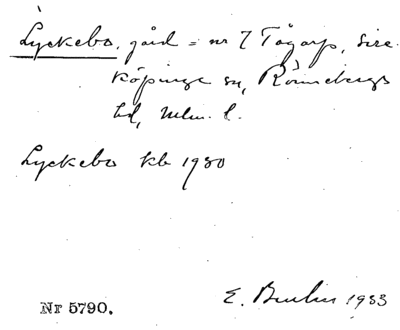 Lyckebo, gård = nr 7 Tågarp, Sire-
köpinge sn, Rönnebergs
hd, Mlm. l.
Lyckebo kb 1930
Nr 5790.
E. 1933